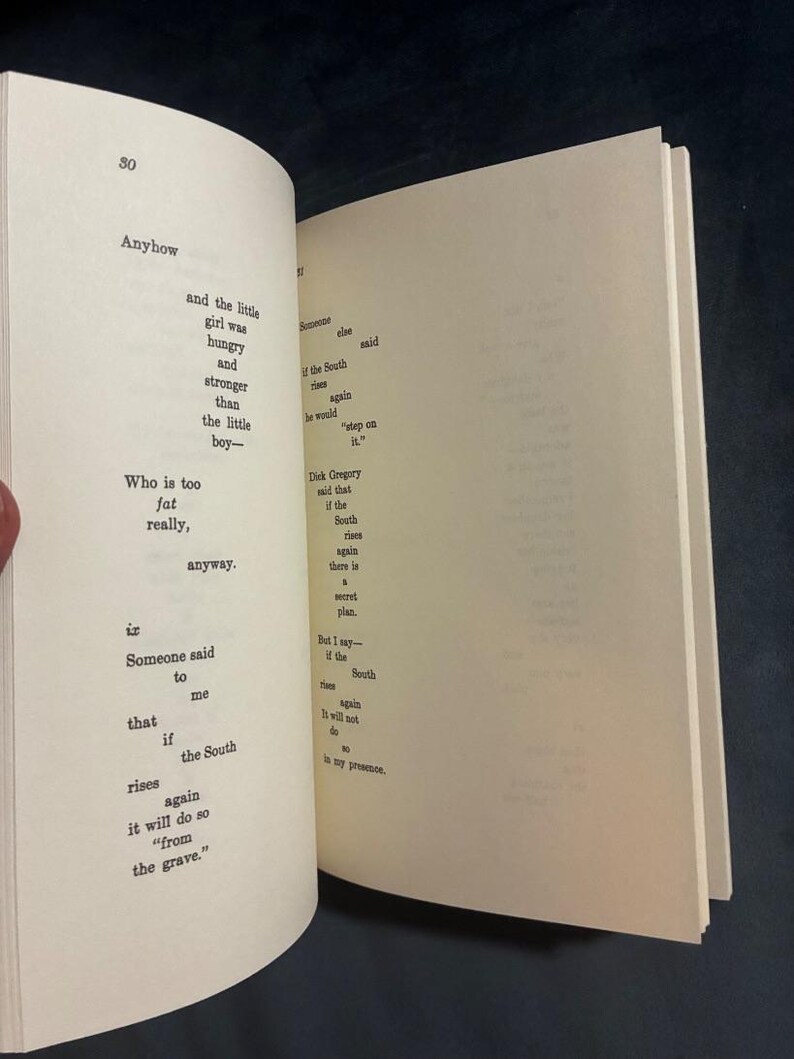 30
Anyhow
and the little
girl was
hungry
and
stronger
than
the little
boy—
Who is too
fat
really,
anyway.
ix
Someone said
to
me
that
if
the South
rises
again
it will do so
"from
the grave."
31
Someone
else
said
if the South
rises
again
he would
"step on
it."
Dick Gregory
said that
if the
South
rises
again
there is
a
secret
plan.
But I say—
if the
South
rises
again
It will not
do
so
in my presence.